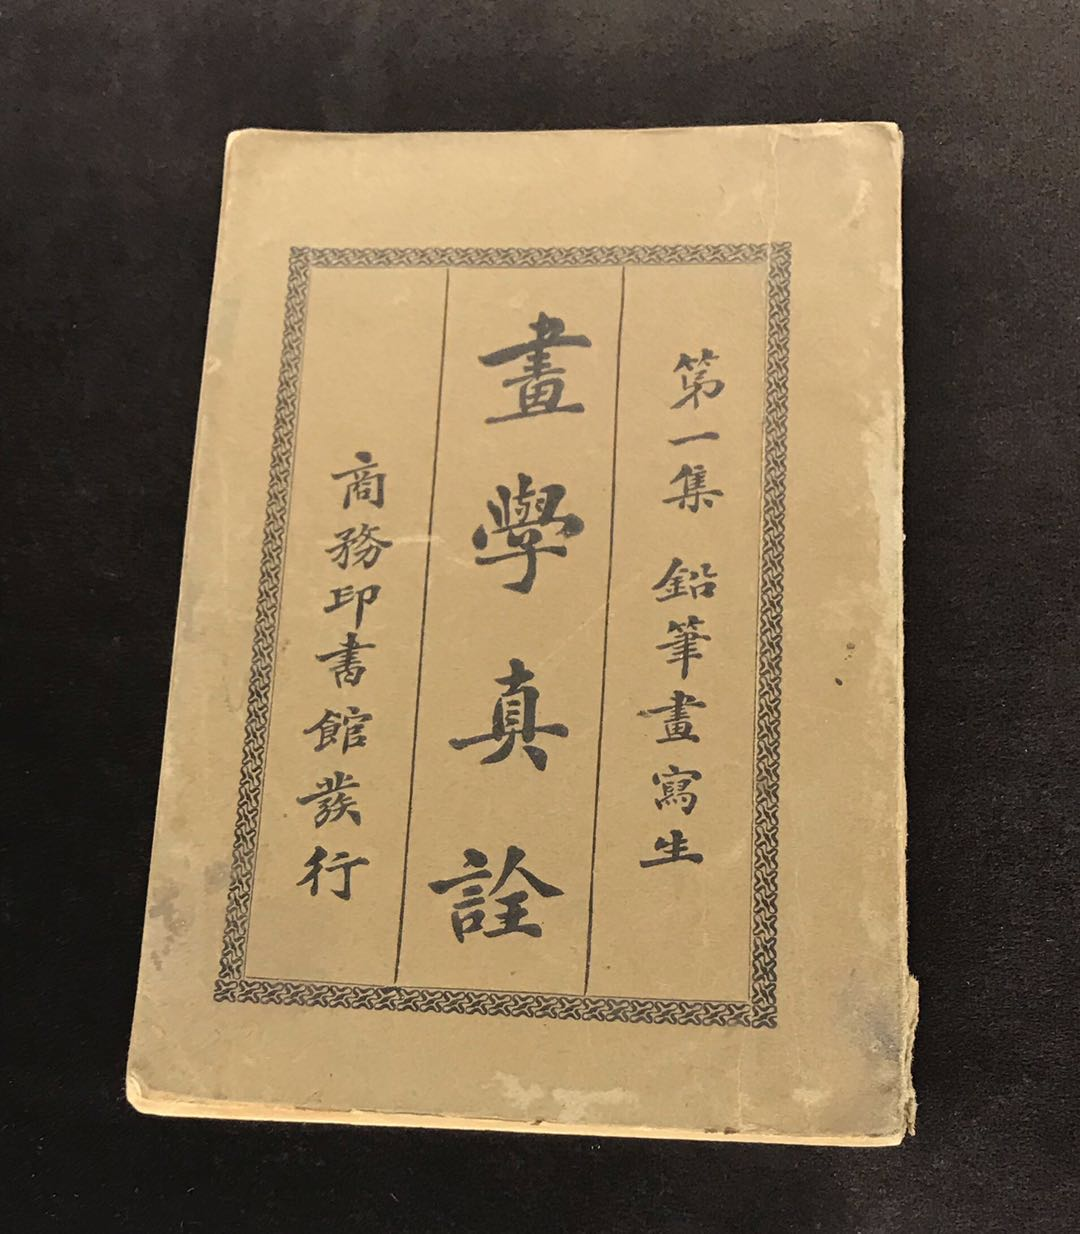 第一集 鉛筆畫寫生
畫學真詮
商務印書館發行